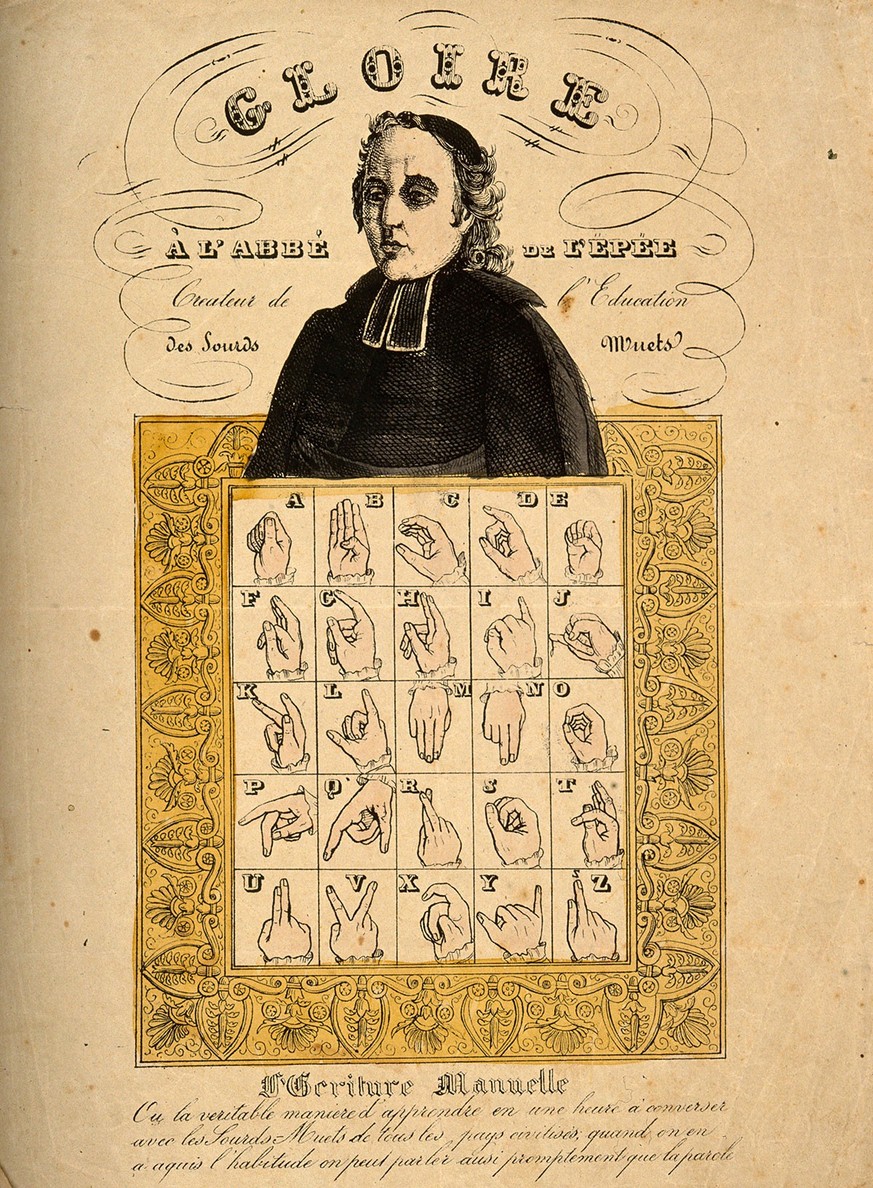 GLOIRE
À L'ABBÉ DE L'ËPÉE
Createur de l'Education
des Sourds Muets
A B C D E
F G H I J
K L M N O
P Q R S T
U V X Y Z
L'Ecriture Manuelle
Ou la veritable maniere d'apprendre en une heure à converser
avec les Sourds-Muets de tous les pays civilisés; quand on en
a aquis l'habitude on peut parler ausi promptement que la parole